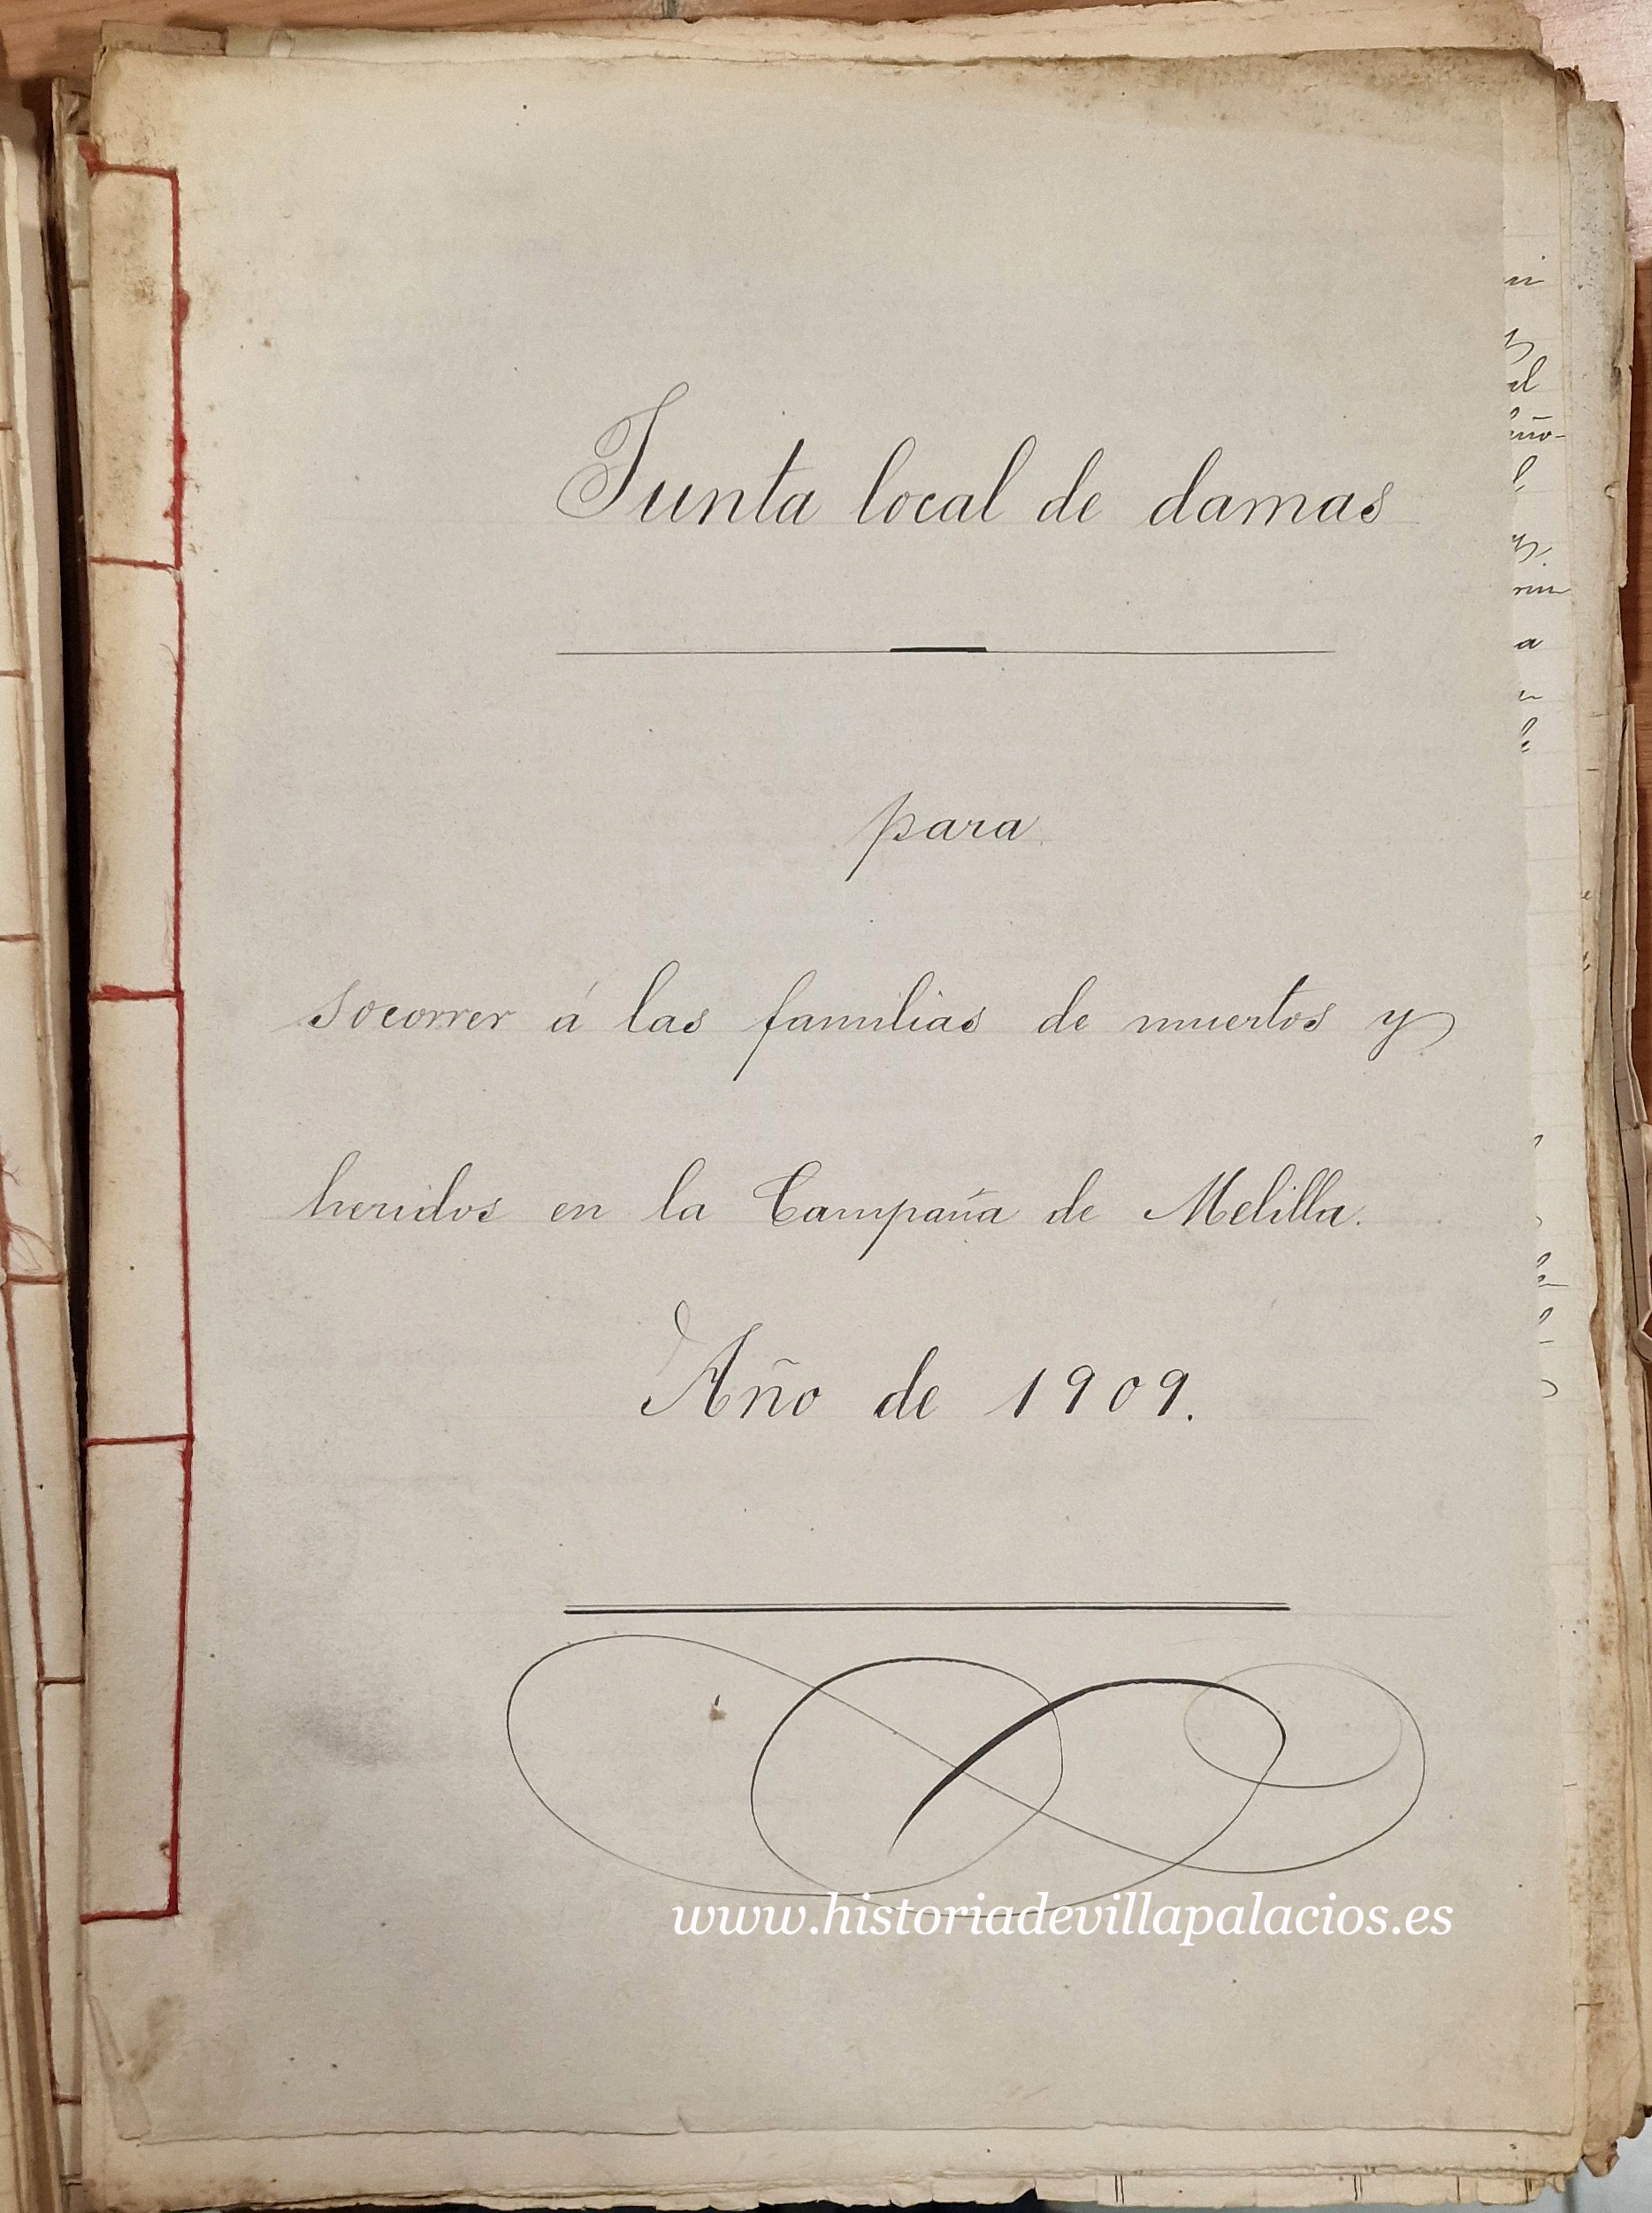 Junta local de damas
para
socorrer á las familias de muertos y
heridos en la Campaña de Melilla.
Año de 1909.
www.historiadevillapalacios.es